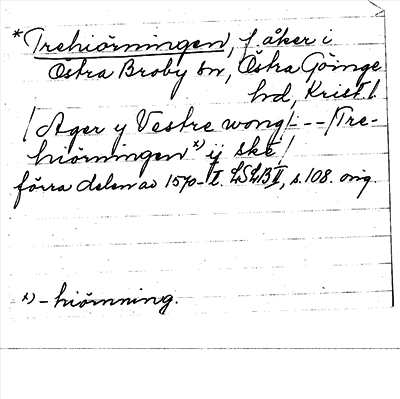 *Trehiörningen, f. åker i
Östra Broby sn, Östra Göinge
hd, Krist l
/Ager y Vestre wong/---/Tre-
hiörningen x) ij ske/
förra delen av 1570-t. LSLB II, s. 108. orig.
x) -hiörnning.